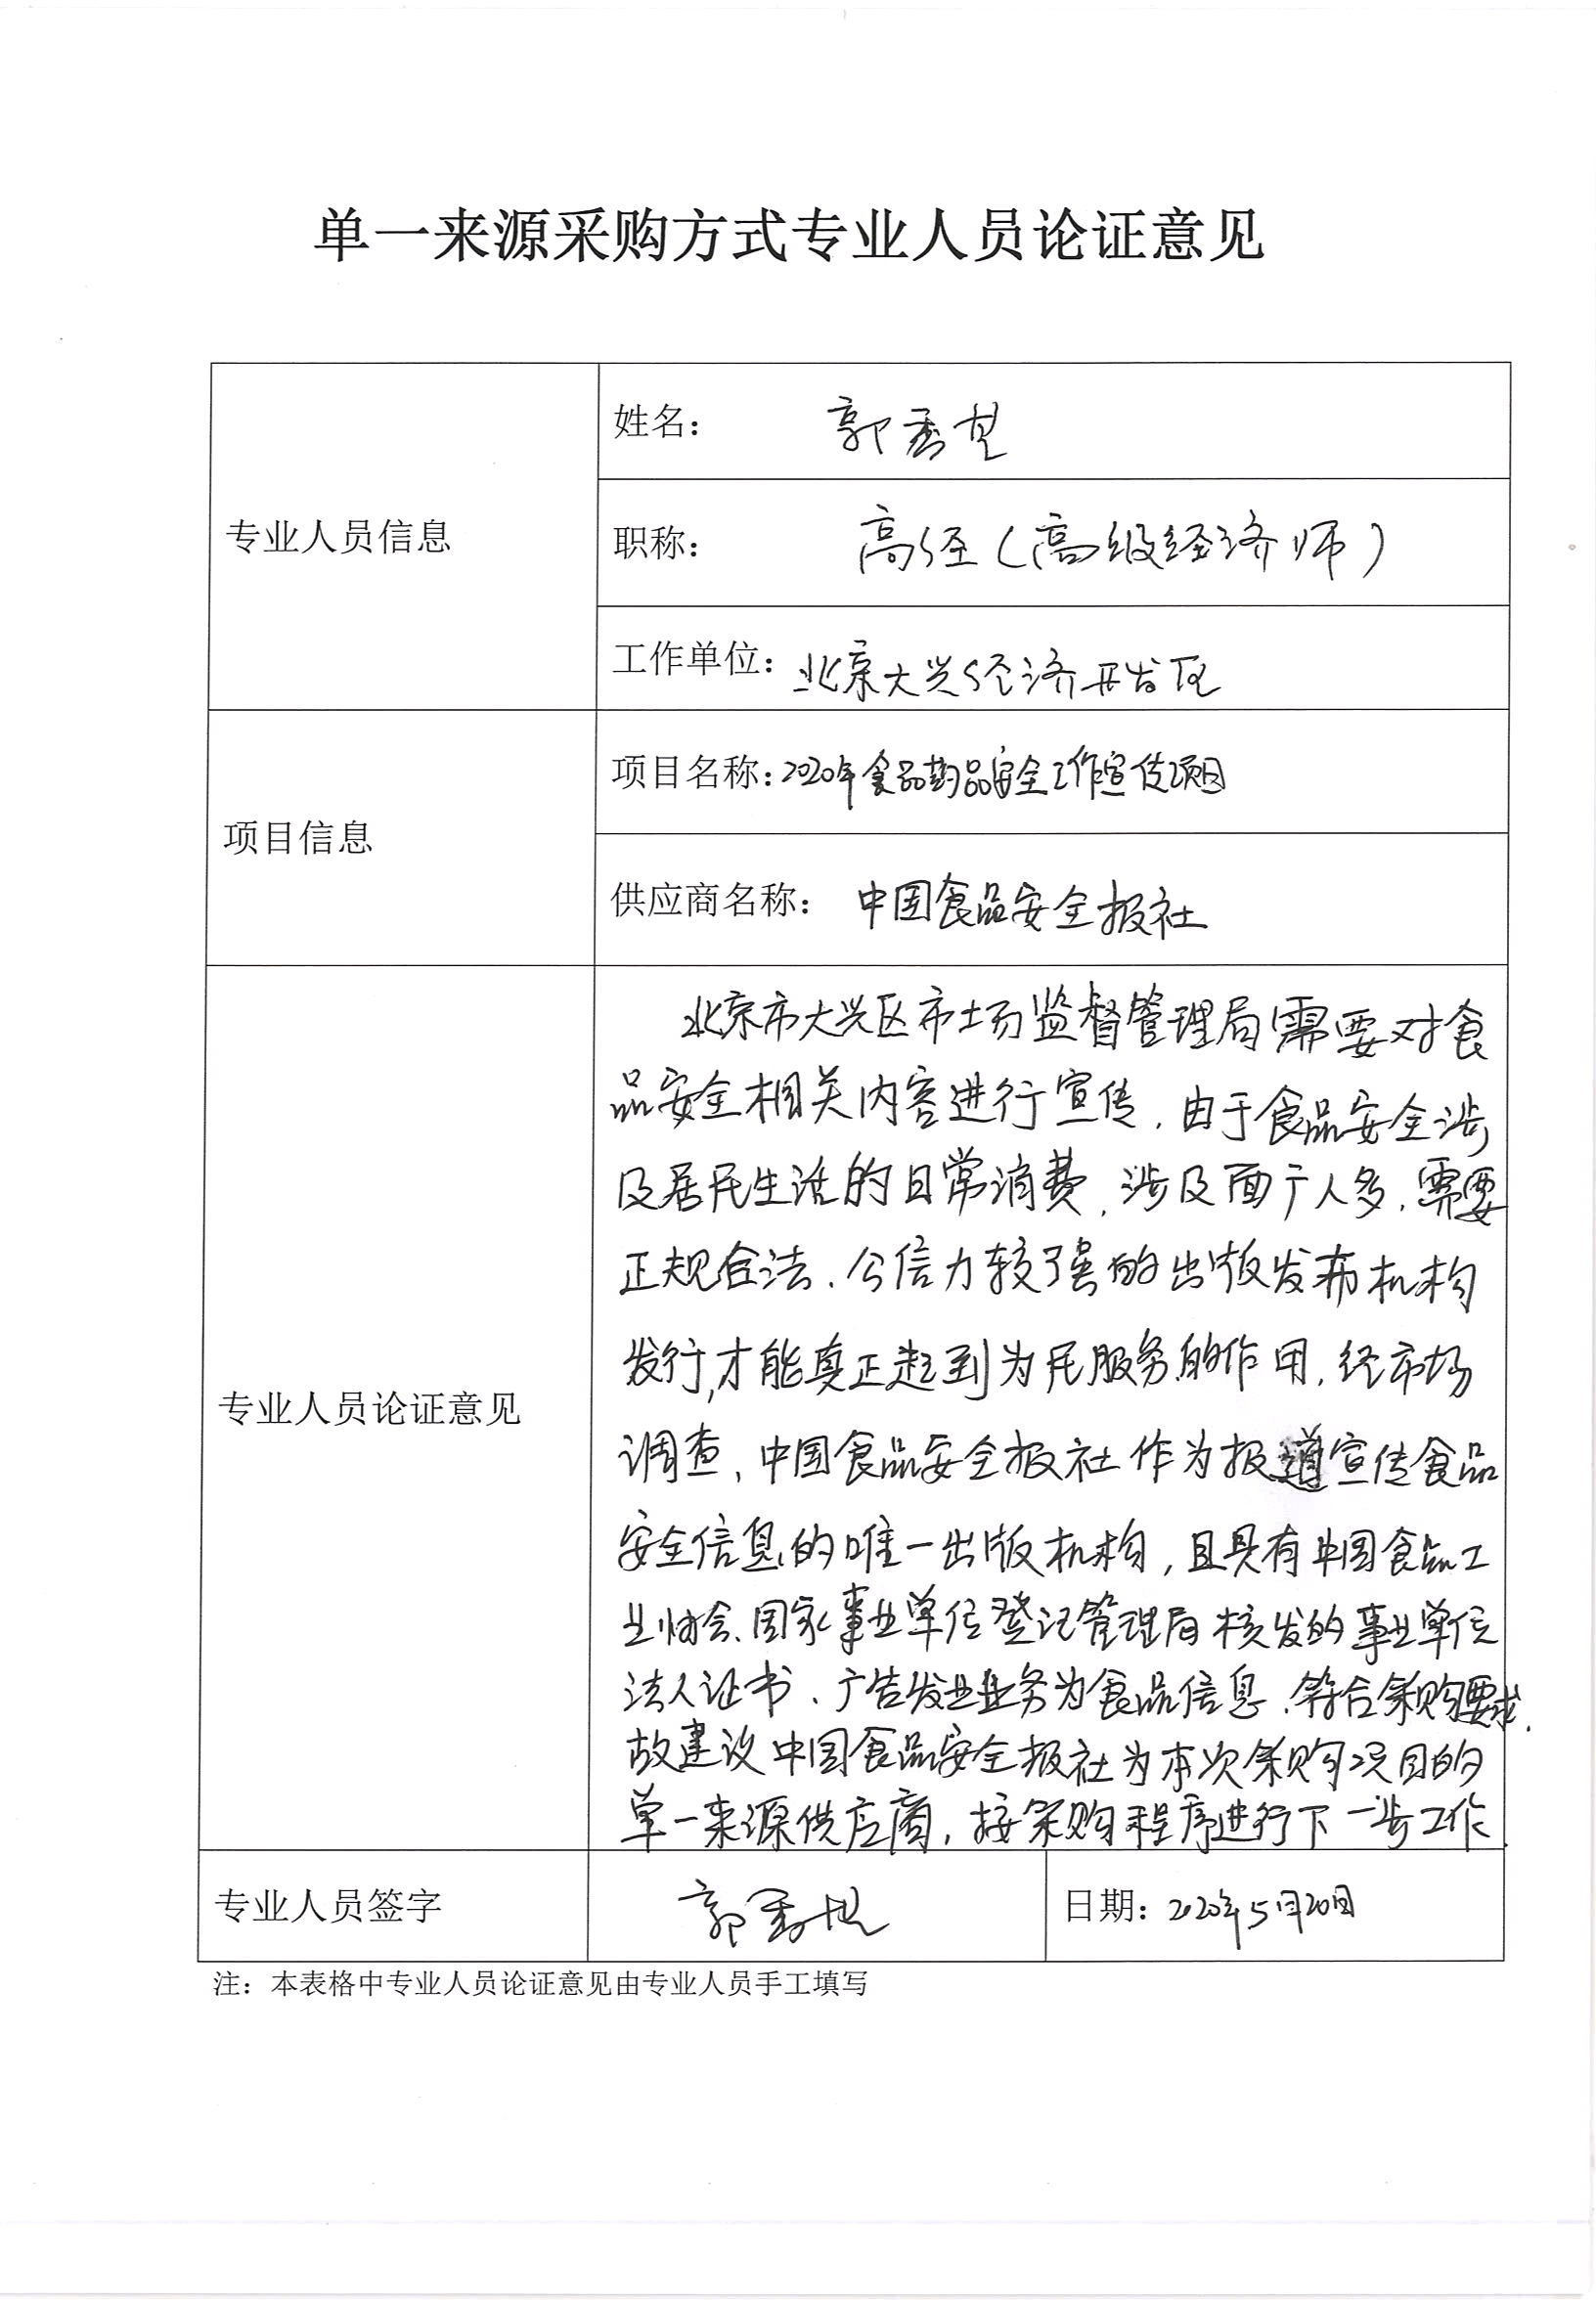 单一来源采购方式专业人员论证意见
专业人员信息
姓名： 郭秀
职称： 高经（高级经济师）
工作单位：北京大兴经济开发区
项目信息
项目名称：2020年食品药品安全工作宣传项目
供应商名称： 中国食品安全报社
专业人员论证意见
北京市大兴区市场监督管理局需要对食
品安全相关内容进行宣传，由于食品安全涉
及居民生活的日常消费，涉及面广人多，需要
正规合法、公信力较强的出版发布机构
发行，才能真正起到为民服务的作用，经市场
调查，中国食品安全报社作为报道宣传食品
安全信息的唯一出版机构，且具有中国食品工
业协会、国家事业单位登记管理局核发的事业单位
法人证书、广告发业务为食品信息，符合采购要求，
故建议中国食品安全报社为本次采购项目的
单一来源供应商，按采购程序进行下一步工作.
专业人员签字
郭秀
日期：2020年5月20日
注：本表格中专业人员论证意见由专业人员手工填写